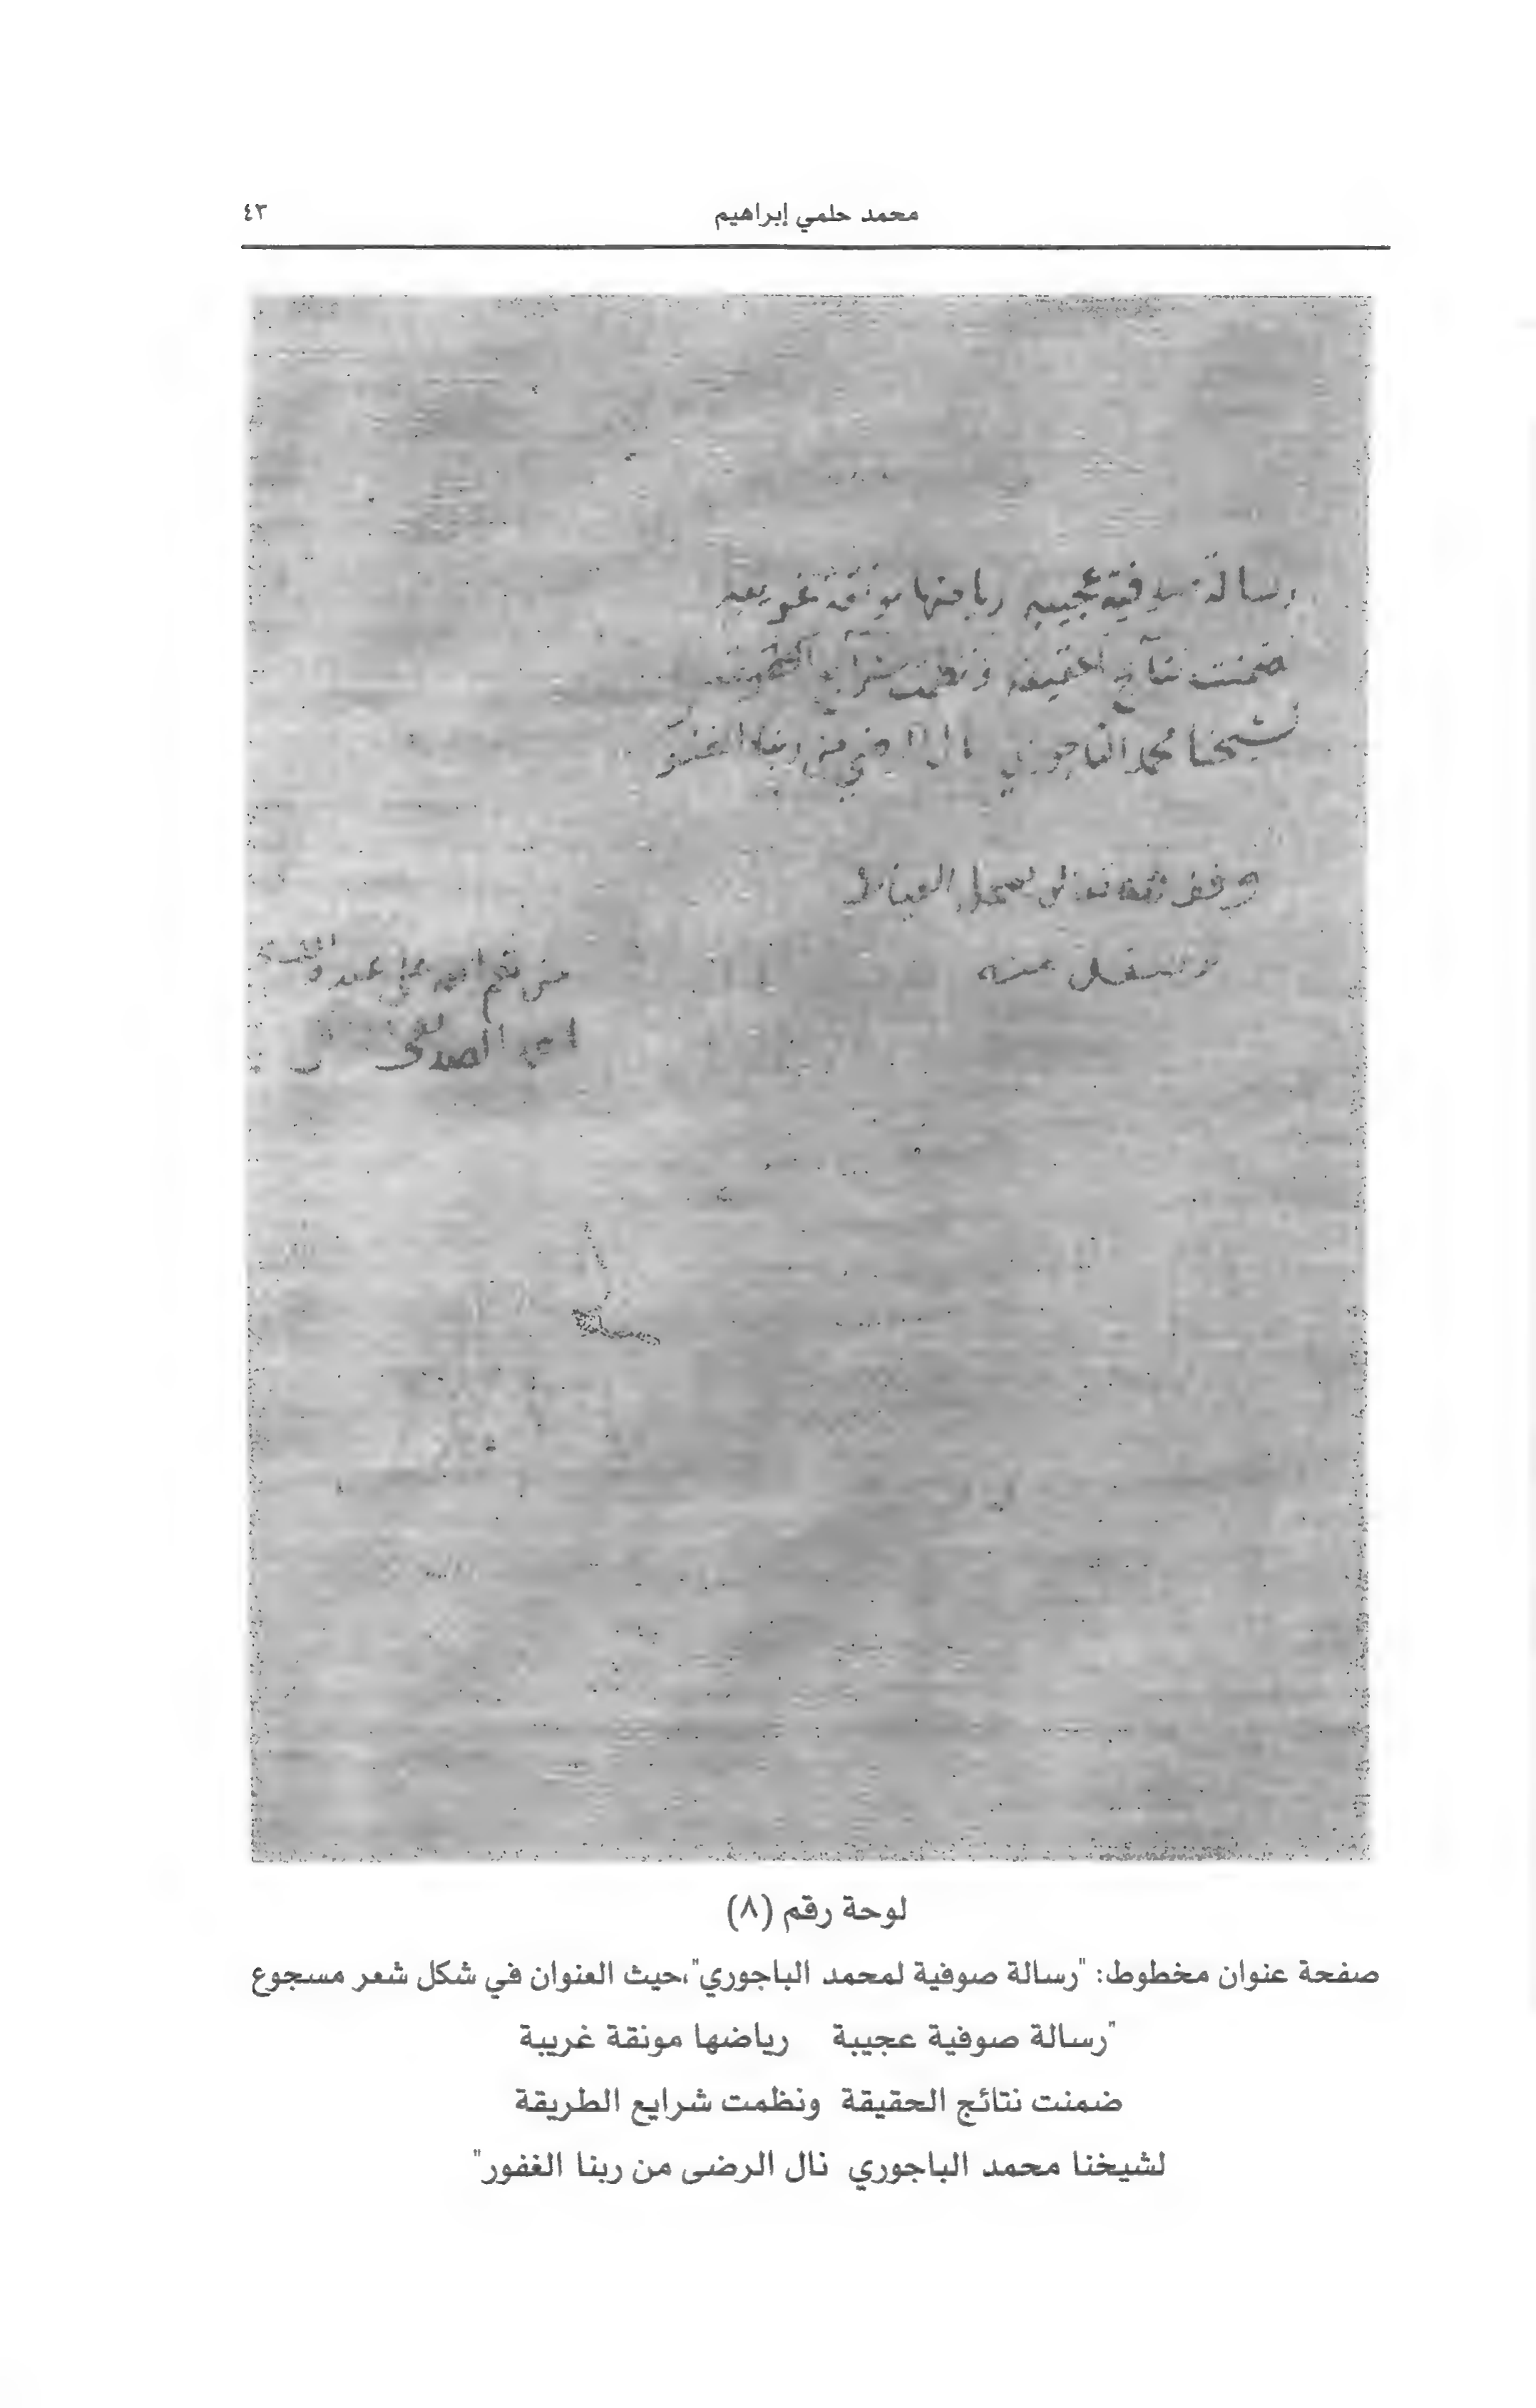 محمد حلمي إبراهيم
٤٣
رسالة صوفية عجيبه رياضها مونقة غريبه
ضمنت نتآيج الحقيقه ونظمت شرايع الطريقه
لشيخنا محمد الباجوري نال الرضي من ربنا الغفور
وقف لله تعالى
من نعم الله على عبده
لوحة رقم (٨)
صفحة عنوان مخطوط: "رسالة صوفية لمحمد الباجوري"،حيث العنوان في شكل شعر مسجوع
"رسالة صوفية عجيبة رياضها مونقة غريبة
ضمنت نتائج الحقيقة ونظمت شرايع الطريقة
لشيخنا محمد الباجوري نال الرضى من ربنا الغفور"